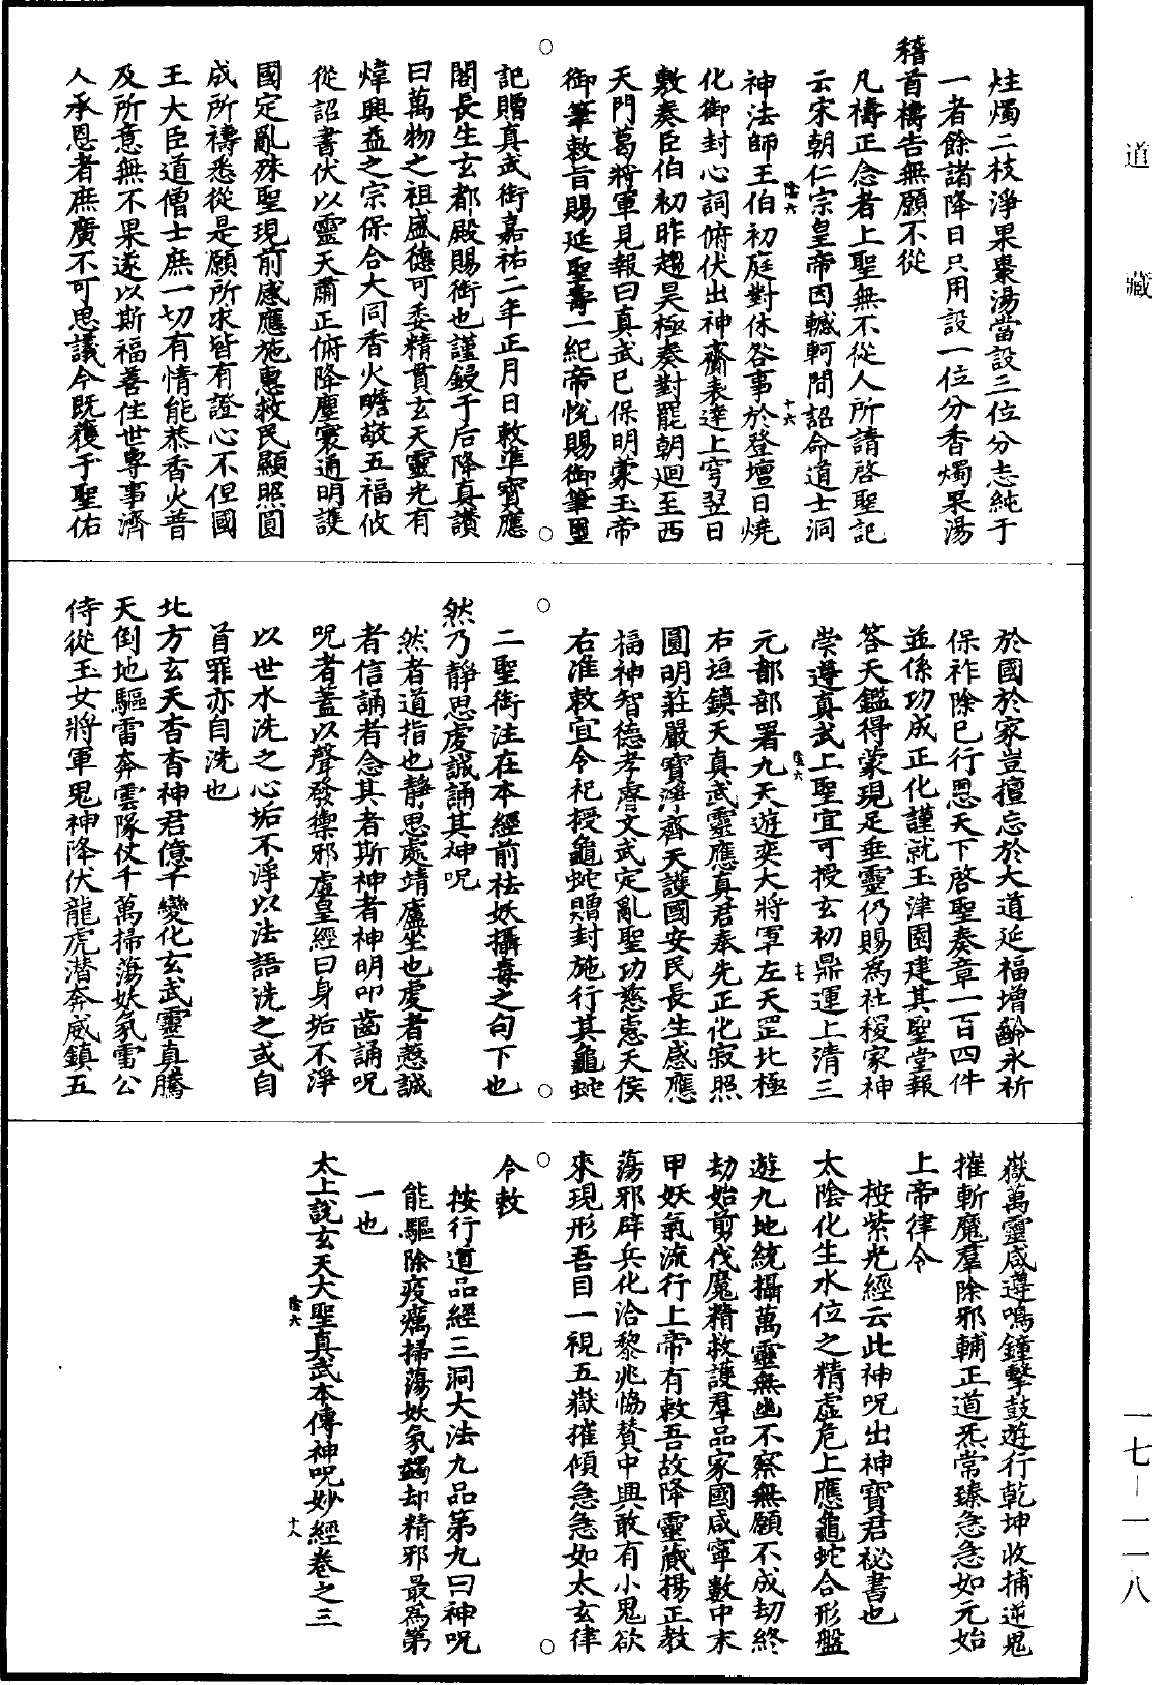 道藏
一七-一一八
炷燭二枝淨果棗湯當設三位分志純于
一者餘諸降日只用設一位分香燭果湯
稽首禱告無願不從
凡禱正念者上聖無不從人所請啓聖記
云宋朝仁宗皇帝因轗軻問詔命道士洞
神法師王伯初庭對休咎事於登壇日燒
化御封心詞俯伏出神齎表達上穹翌日
敷奏臣伯初昨趨昊極奏對罷朝迴至西
天門葛將軍見報曰真武已保明蒙玉帝
御筆敕旨賜延聖壽一紀帝悅賜御筆墨
記贈真武銜嘉祐二年正月日敕準寶應
閣長生玄都殿賜銜也謹錄于后降真讚
曰萬物之祖盛德可委精貫玄天靈光有
煒興益之宗保合大同香火瞻敬五福攸
從詔書伏以靈天肅正俯降塵寰通明護
國定亂殊聖現前感應施惠救民顯照圓
成所禱悉從是願所求皆有證心不但國
王大臣道僧士庶一切有情能恭香火普
及所意無不果遂以斯福善住世專事濟
人承恩者庶廣不可思議今既獲于聖佑
陰六
十六
於國於家豈擅忘於大道延福增齡永祈
保祚除已行恩天下啓聖奏章一百四件
並係功成正化謹就玉津園建其聖堂報
答天鑑得蒙現足垂靈仍賜為社稷家神
崇遵真武上聖宜可授玄初鼎運上清三
元都部署九天遊奕大將軍左天罡北極
右垣鎮天真武靈應真君奉先正化寂照
圓明莊嚴寶淨齊天護國安民長生感應
福神智德孝睿文武定亂聖功慈惠天侯
右准敕宜令祀授龜蛇贈封施行其龜蛇
二聖銜注在本經前祛妖攝毒之句下也
然乃靜思虔誠誦其神呪
然者道指也靜思處靖廬坐也虔者愨誠
者信誦者念其者斯神者神明叩齒誦呪
呪者蓋以聲發禦邪虛皇經曰身垢不淨
以世水洗之心垢不淨以法語洗之或自
首罪亦自洗也
北方玄天杳杳神君億千變化玄武靈真騰
天倒地驅雷奔雲隊仗千萬掃蕩妖氛雷公
侍從玉女將軍鬼神降伏龍虎潛奔威鎮五
陰六
十七
嶽萬靈咸遵鳴鐘擊鼓遊行乾坤收捕逆鬼
摧斬魔羣除邪輔正道炁常臻急急如元始
上帝律令
按紫光經云此神呪出神寶君祕書也
太陰化生水位之精虛危上應龜蛇合形盤
遊九地統攝萬靈無幽不察無願不成劫終
劫始剪伐魔精救護羣品家國咸寧數中末
甲妖氣流行上帝有敕吾故降靈闡揚正教
蕩邪辟兵化洽黎兆恊贊中興敢有小鬼欲
來現形吾目一視五嶽摧傾急急如太玄律
令敕
按行道品經三洞大法九品第九曰神呪
能驅除疫癘掃蕩妖氛蠲却精邪最為第
一也
太上說玄天大聖真武本傳神呪妙經卷之三
陰六
十八